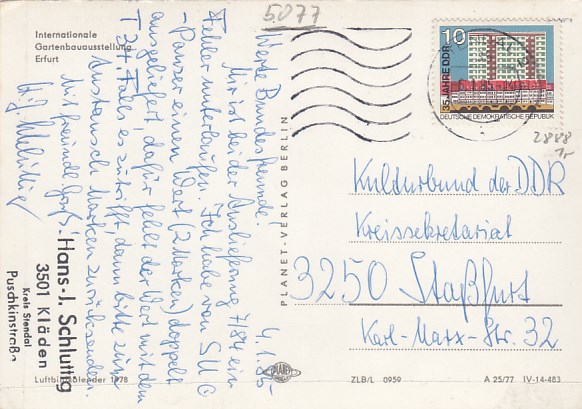 5077
Internationale
Gartenbauausstellung
Erfurt
4.1.85
Werte Bundesfreunde!
Mir ist bei der Auslieferung 7/84 ein
Fehler unterlaufen. Ich habe von SU ©
- Panzer einen Wert (2 Marken) doppelt
ausgeliefert, dafür fehlt der Wert mit dem
T 34. Falls es zutrifft dann bitte zum
Austausch Marken zurücksenden.
Mit freundl. Gruß!
Hans-J. Schluttig
3501 Kläden
Kreis Stendal
Puschkinstraße
Luftbildkalender 1978
PLANET-VERLAG BERLIN
PLANET
10
35 JAHRE DDR
DEUTSCHE DEMOKRATISCHE REPUBLIK
2888
Kulturbund der DDR
Kreissekretariat
3250 Staßfurt
Karl-Marx-Str. 32
ZLB/L 0959
A 25/77 IV-14-483